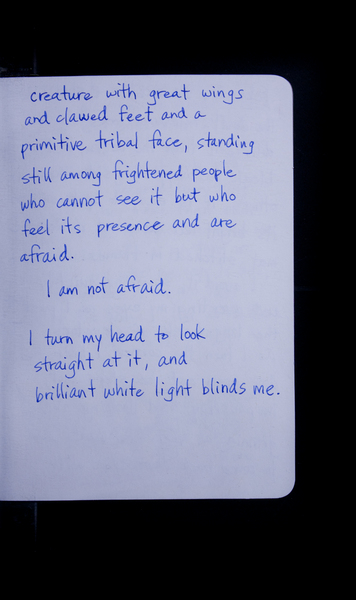 creature with great wings
and clawed feet and a
primitive tribal face, standing
still among frightened people
who cannot see it but who
feel its presence and are
afraid.
I am not afraid.
I turn my head to look
straight at it, and
brilliant white light blinds me.